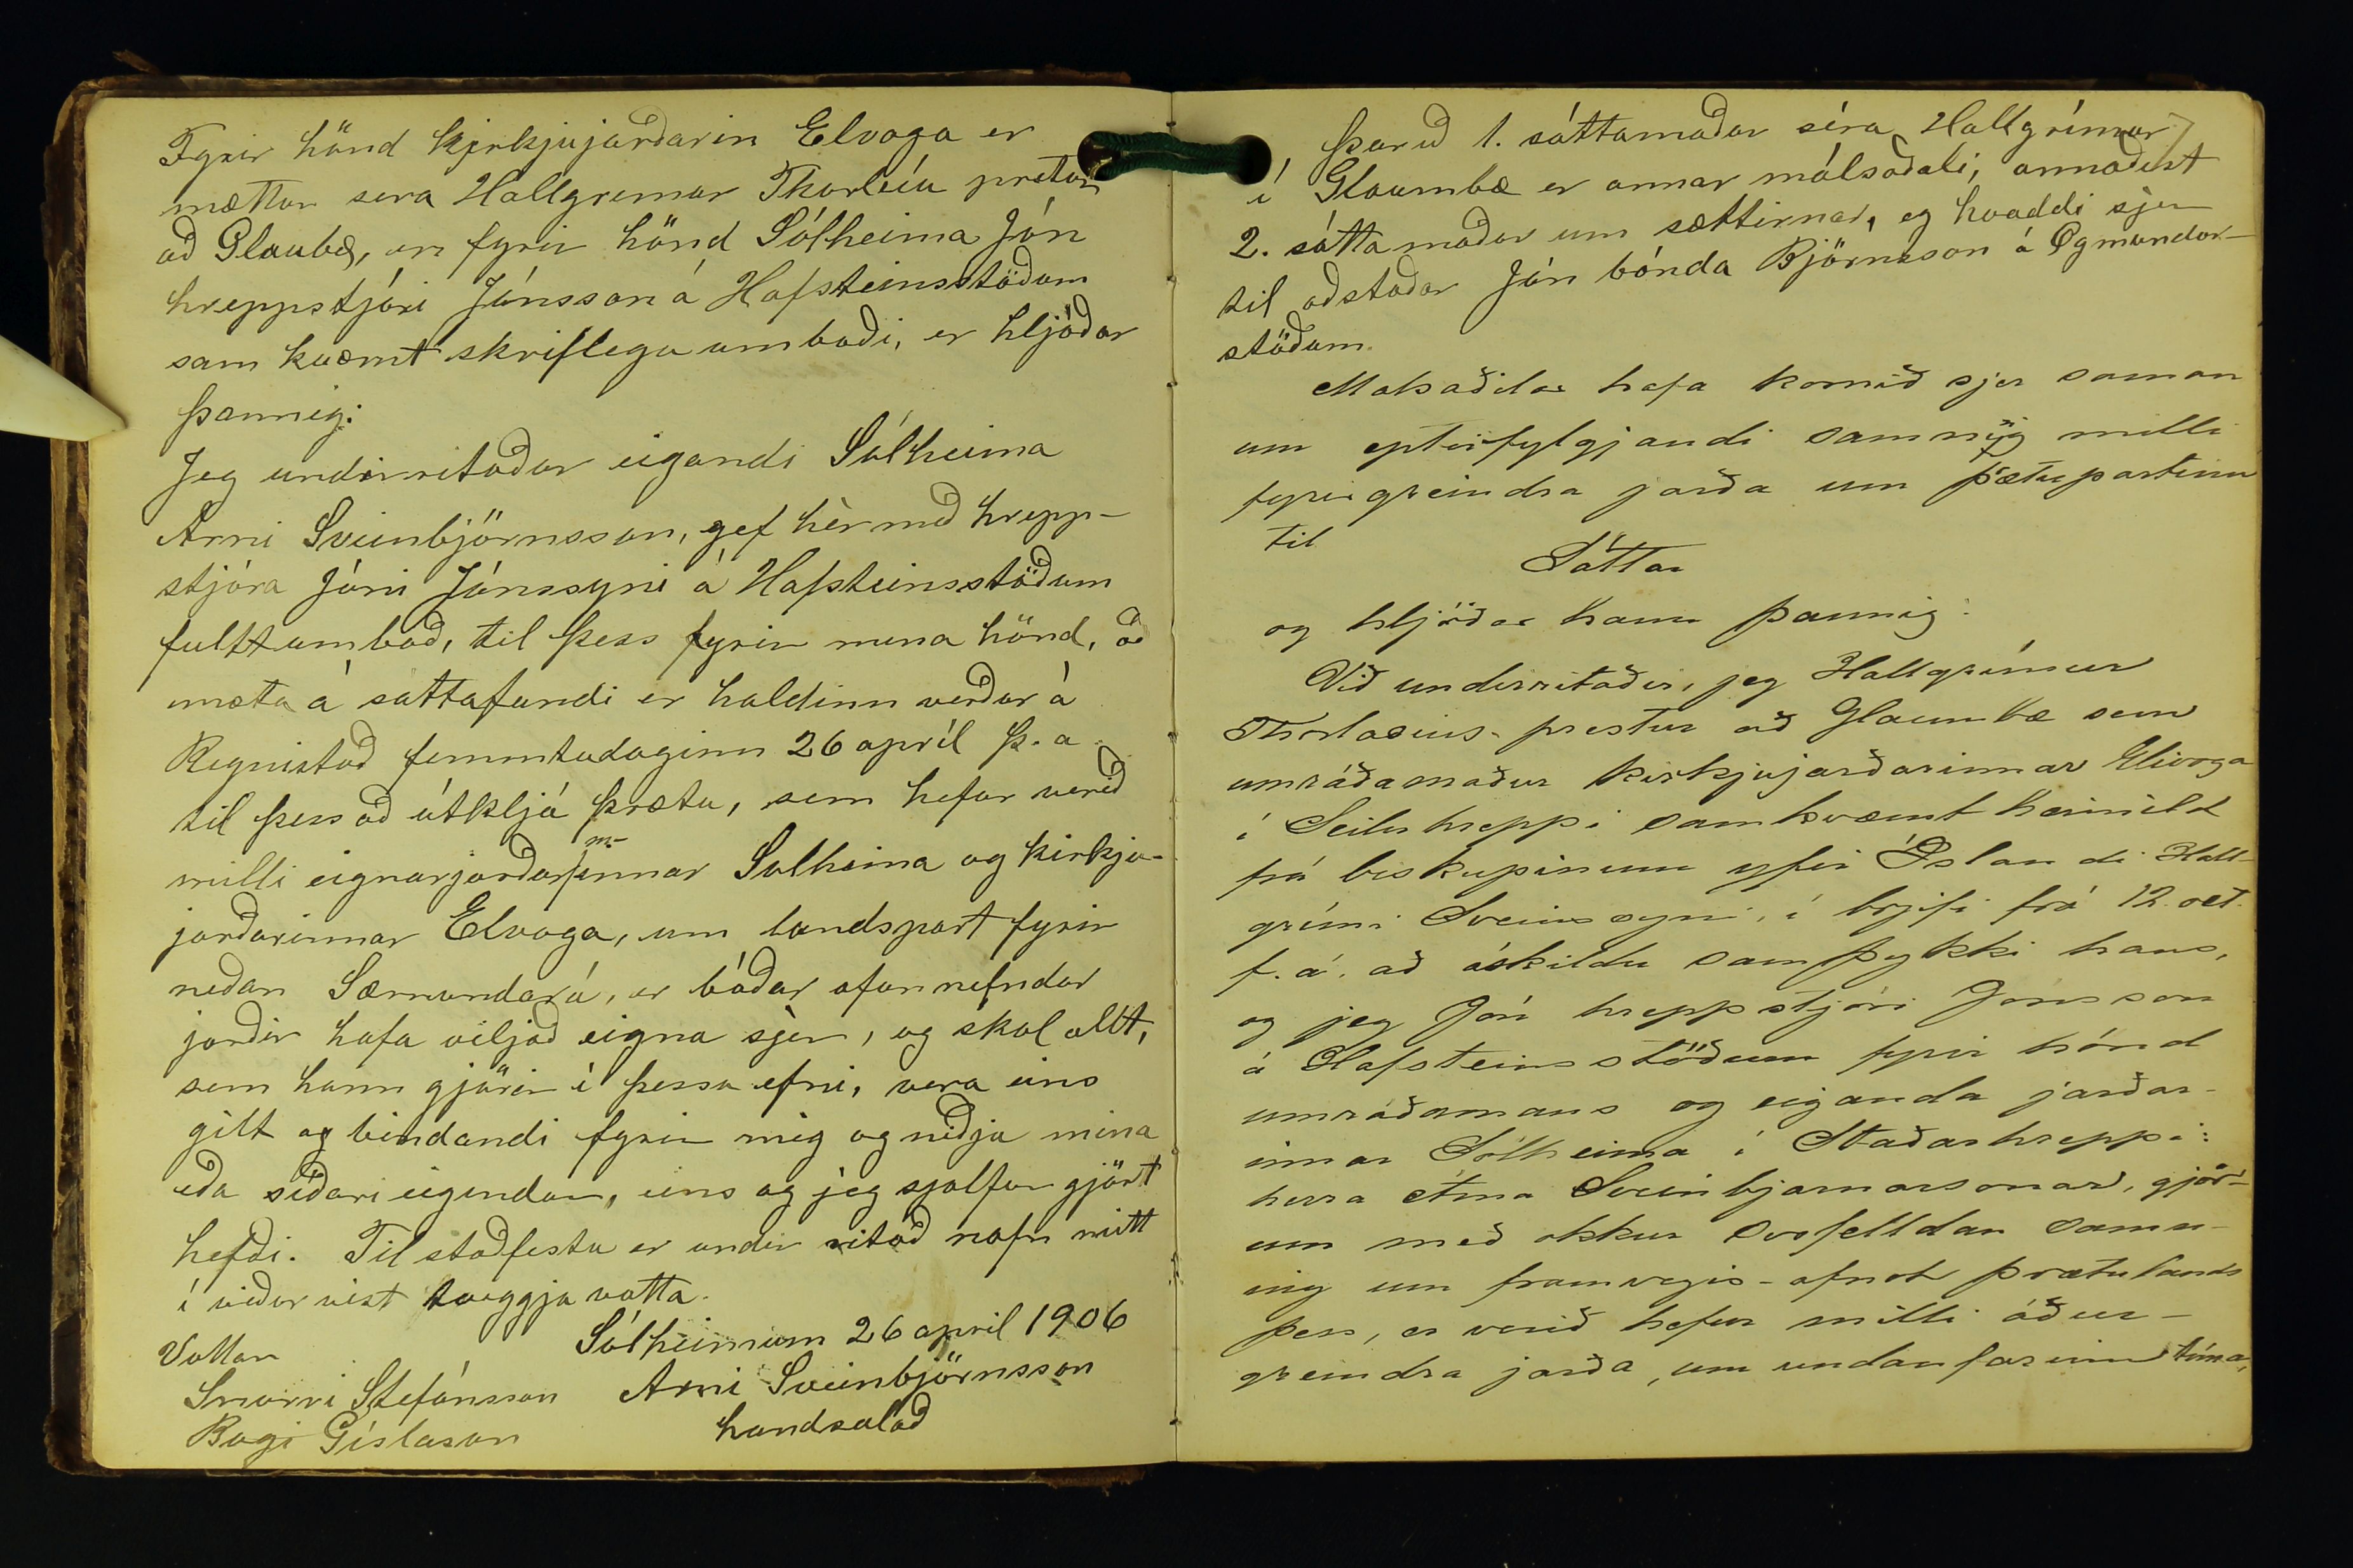 Fyrir hönd kjrkjujarðarin Elvoga er
mættur sera Hallgrimur Thorlcíu pretur
að Glaubæ, en fyrir hönd Sólheima Jón
hreppstjóri Jónsson á Hafsteinsstöðum
sam kvæmt skriflegu umboði, er hljóðar
þannig:
Jeg undirritaður eigandi Sólheima
Arni Sveinbjörnsson, gef hèr með hrepp-
stjóra Jóni Jónssyni á Hafsteinsstöðum
fullt umboð, til þess fyrir mina hönd, að
mæta á sáttafundi er haldinn verður á
Regnistað fimmtudaginn 26 apríl þ. a.
til þess að útkljá þrætu, sem hefur verið
milli eignarjarðarinnar Solheima og kirkju-
jarðarinnar Elvoga, um landspart fyrir
neðan Sæmundará, er báðar ofannefndar
jarðir hafa viljað eigna sjer, og skal allt,
sem hann gjörir í þessu efni, vera eins
gilt og bindandi fyrir mig og niðja mina
eða síðari eigendur, eins og jeg sjalfur gjört
hefði. Til staðfestu er undir ritað nafn mitt
í viður vist tveggja votta.
Sólheimum 26 april 1906
Vottar
Snorri Stefánsson Arni Sveinbjörnsson
Bogi Gíslason handsalað
7
Þar eð 1. sáttamaður síra Hallgrímur
í Glaumbæ er annar málsaðali, annaðist
2. sátta maður um sættirnar, og kvaddi sjer
til aðstoðar Jón bónda Björnsson á Ögmundar-
stöðum.
Malsaðilar hafa komið sjer saman
um eptirfylgjandi samnig milli
fyrirgreindra jarða um þrætupartinn
til
Sáttar
og hljóðar hann þannig:
Við undirritaðir, jeg Hallgrímur
Thorlacius prestur að Glaumbæ sem
umráðamaður kirkjujarðarinnar Elivoga
í Seiluhreppi samkvæmt heimild
frá biskupinum yfir Íslandi Hall-
grími Sveinssyni, í brjefi frá 12. oct.
f. á. að áskildu samþykki hans,
og jeg Jón hreppstjóri Jónsson
á Hafsteinsstöðum fyrir hönd
umráðamans og eiganda jarðar-
innar Sólheima í Staðarhreppi:
herra Árna Sveinbjarnarsonar, gjör-
um með okkur svofelldan samn-
ing um framvegis-afnot þrætulands
þess, er verið hefur milli áður-
greindra jarða, um undanfarinn tíma,